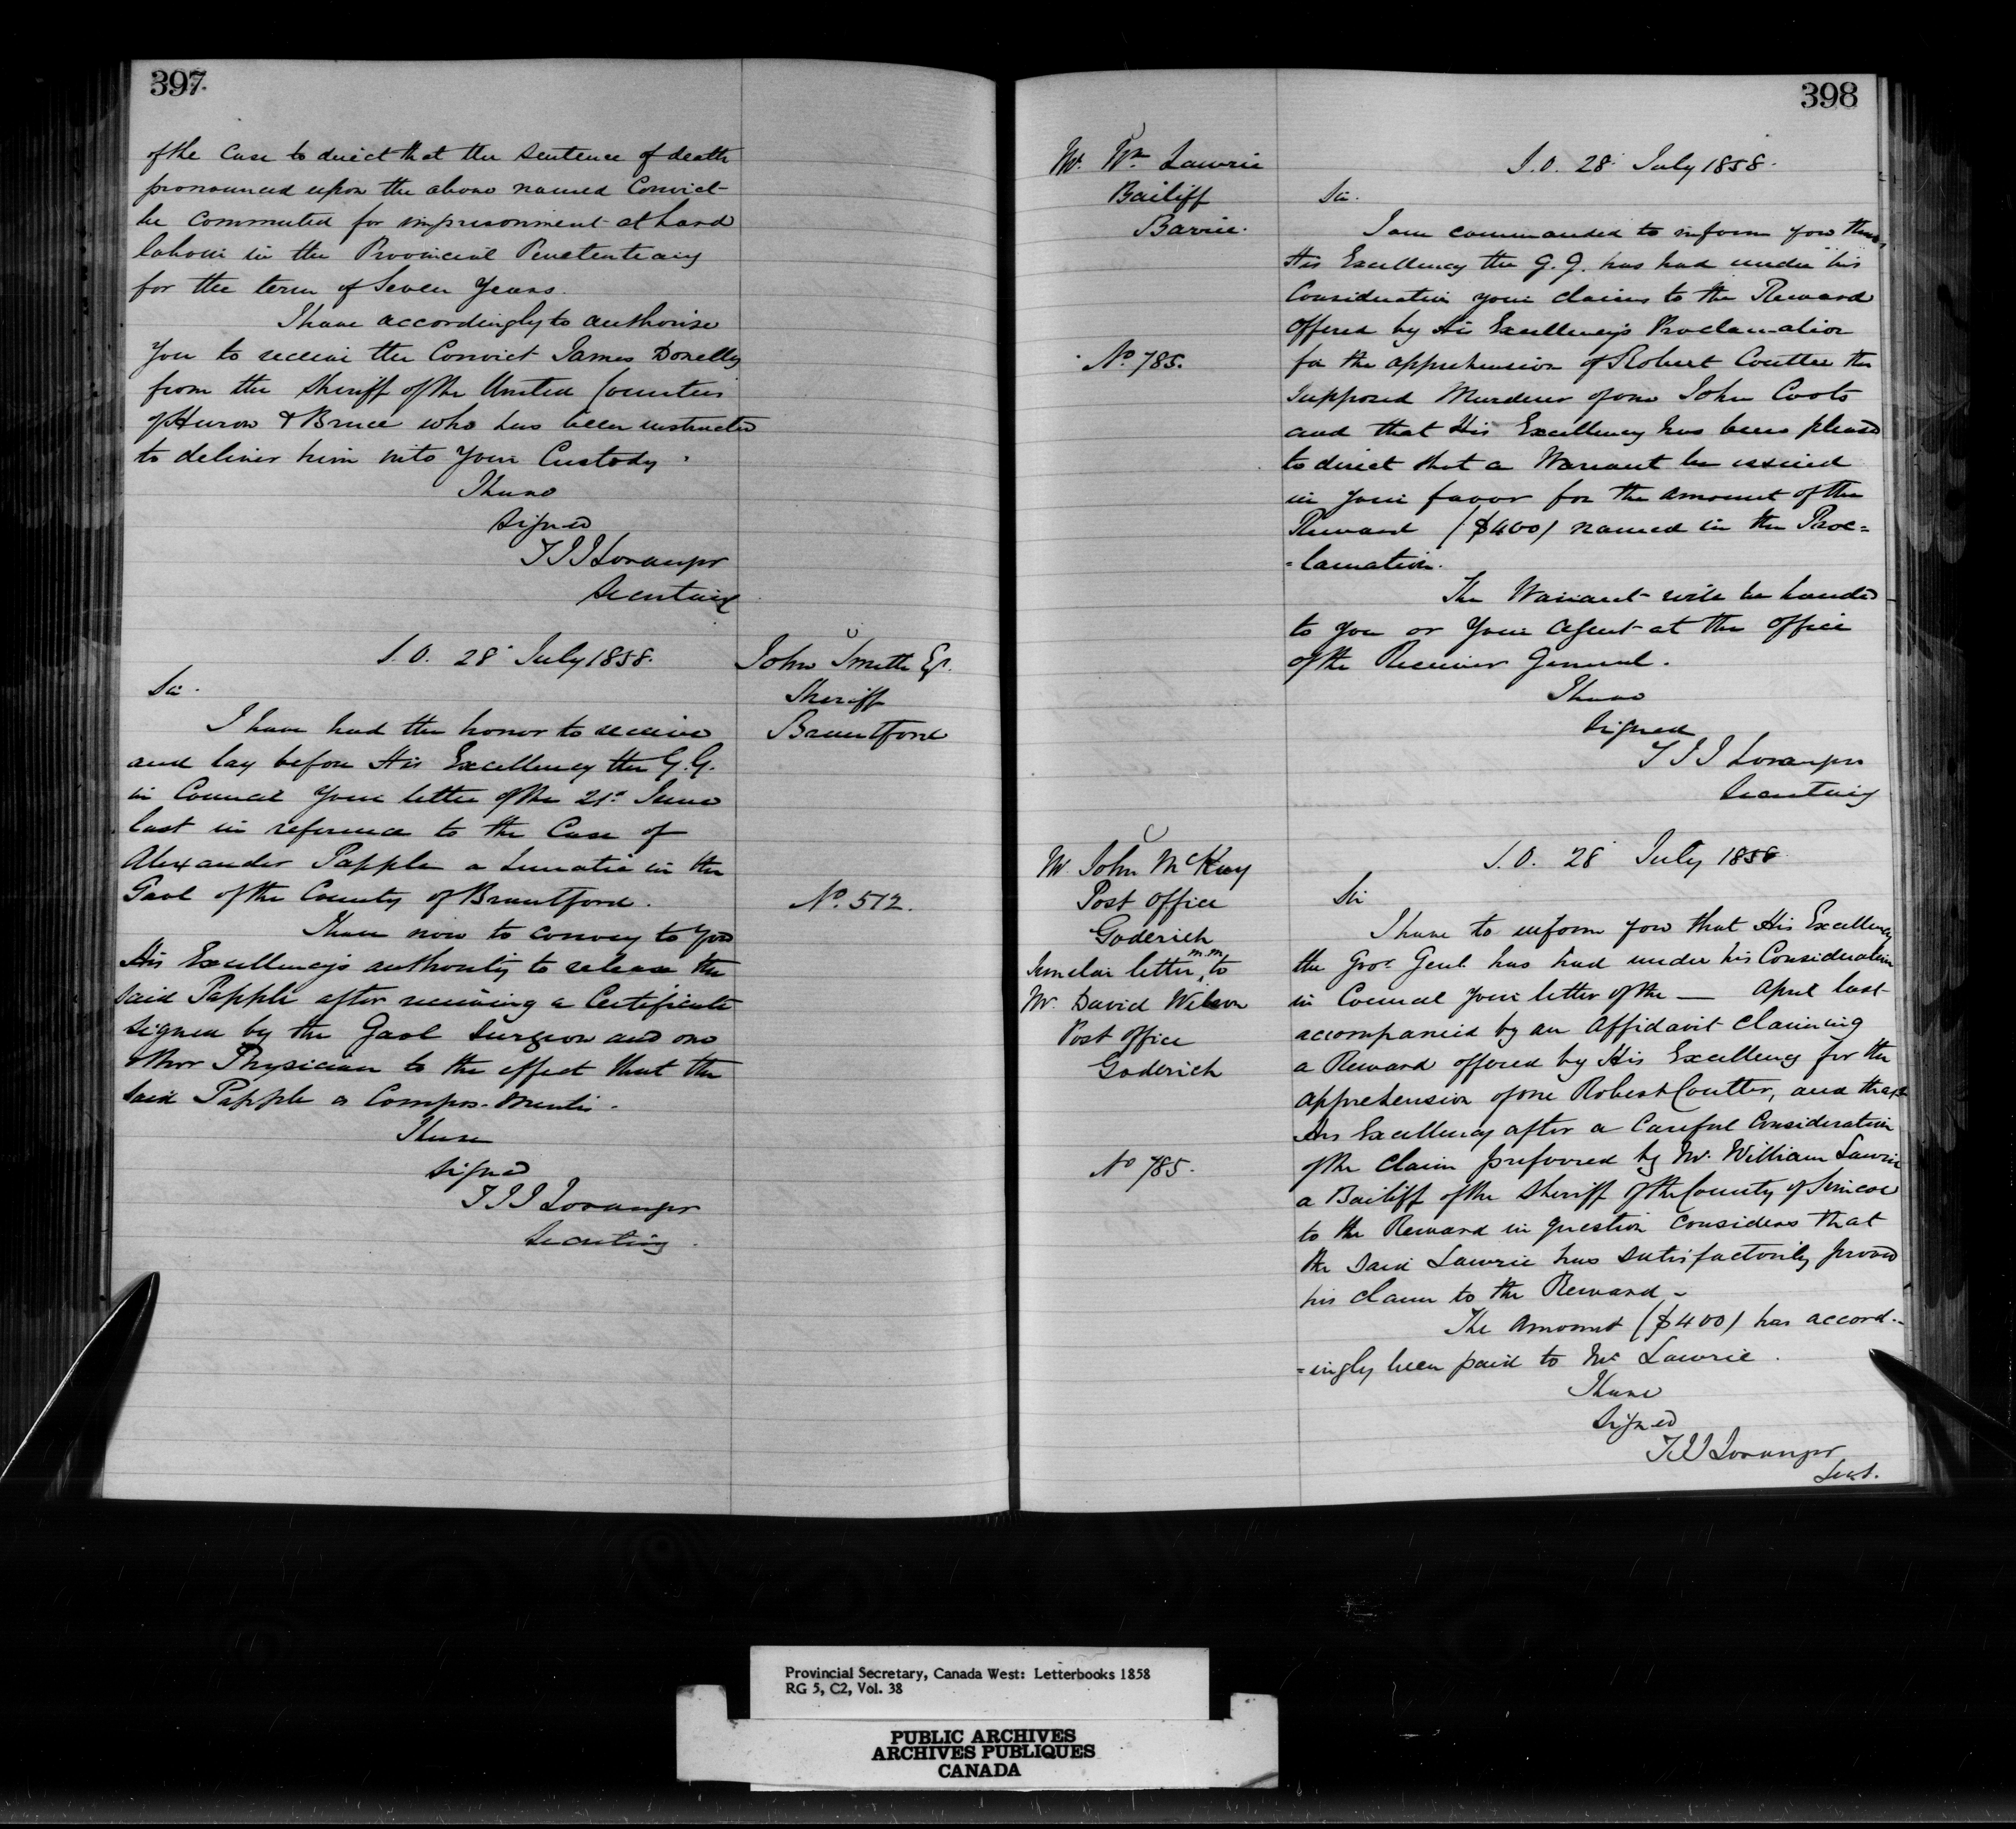 397.
of the Case to direct that the Sentence of death
pronounced upon the above named Convict
be Commuted for imprisonment at hard
labour in the Provincial Penetentiary
for the term of Seven Years.
I have accordingly to authorise
You to receive the Convict James Donelly
from the Sheriff of the United Counties
of Huron & Bruce who has been instructed
to deliver him into Your Custody.
I have
Signed
T J J Loranger
Secretary
S.O. 28 July 1858.
John Smith Esq.
Sheriff
Brantford
Sir.
I have had the honor to receive
and lay before His Excellency the G.G.
in Council Your letter of the 21st June
last in reference to the Case of
Alexander Papple a Lunatic in the
Gaol of the County of Brantford.
No. 512.
I have now to convey to You
His Excellency's authority to release the
said Papple after receiving a Certificate
Signed by the Gaol Surgeon and one
other Physician to the effect that the
said Papple is Compos-Mentis.
I have
Signed
T J J Loranger
Secretary.
398
Mr. Wm Lawrie
Bailiff
Barrie.
No 785.
S.O. 28 July 1858.
Sir.
I am commanded to inform you that
His Excellency the G.G. has had under his
Consideration your claims to the Reward
offered by His Excellency's Proclamation
for the apprehension of Robert Coulter the
supposed Murderer of one John Coots
and that His Excellency has been pleased
to direct that a Warrant be issued
in your favor for the amount of the
Reward ($400) named in the Proc=
=lamation.
The Warrant will be handed
to You or Your Agent at the Office
of the Receiver General.
I have
Signed
T J J Loranger
Secretary
Mr. John McKay
Post Office
Goderich
Similar letter, m.m. to
Mr. David Wilson
Post Office
Goderich
No 785.
S.O. 28 July 1858
Sir
I have to inform you that His Excellency
the Govr. Genl. has had under his Consideration
in Council your letter of the — April last
accompanied by an Affidavit claiming
a Reward offered by His Excellency for the
apprehension of one Robert Coulter, and that
His Excellency after a Careful Consideration
of the Claim preferred by Mr. William Lawrie
a Bailiff of the Sheriff of the County of Simcoe
to the Reward in question considers that
the said Lawrie has satisfactorily proved
his claim to the Reward –
The amount ($400) has accord=
=ingly been paid to Mr Lawrie.
I have
Signed
T J J Loranger
Secy.
Provincial Secretary, Canada West: Letterbooks 1858
RG 5, C2, Vol. 38
PUBLIC ARCHIVES
ARCHIVES PUBLIQUES
CANADA